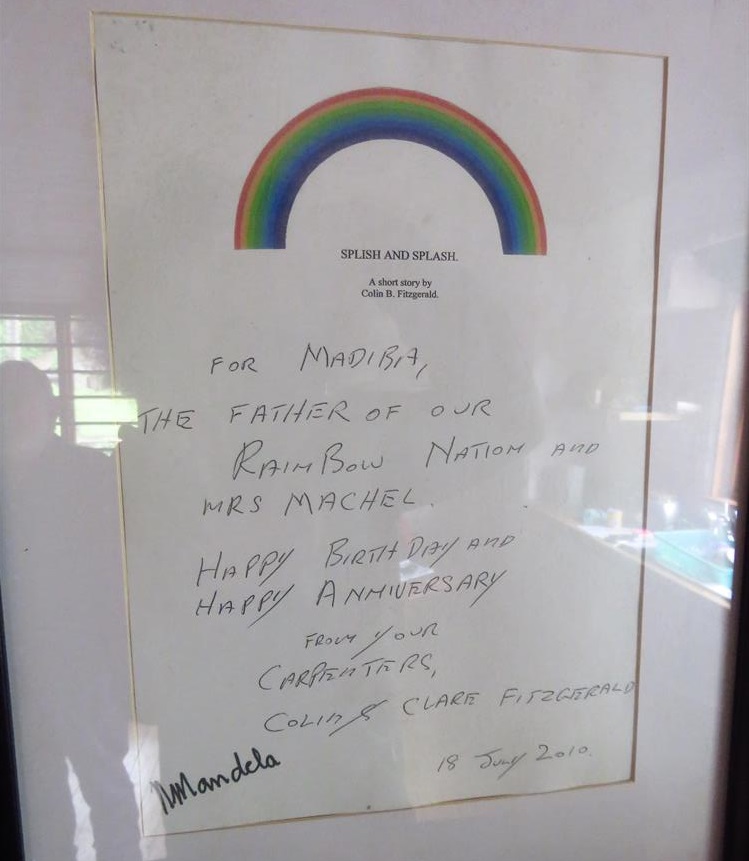 SPLISH AND SPLASH.
A short story by
Colin B. Fitzgerald.
FOR MADIBA,
THE FATHER OF OUR
RAINBOW NATION AND
MRS MACHEL.
HAPPY BIRTHDAY AND
HAPPY ANNIVERSARY
FROM YOUR
CARPENTERS,
COLIN & CLARE FITZGERALD
NMandela
18 July 2010.